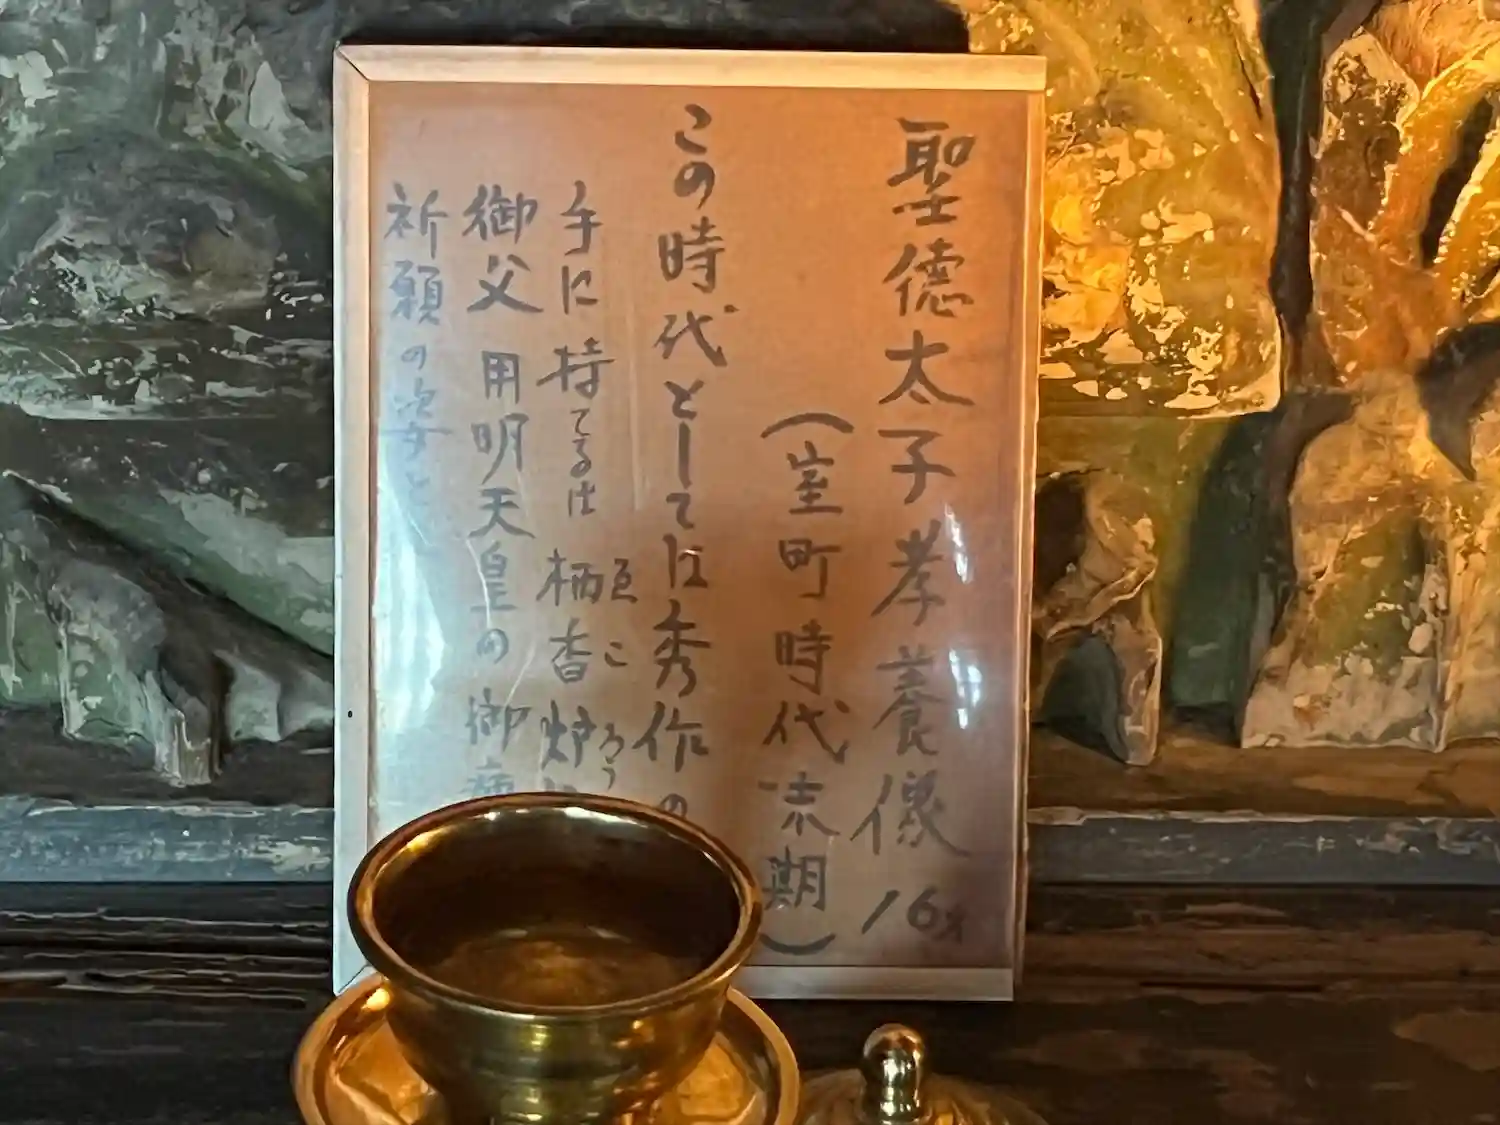 聖徳太子孝養像 16才
(室町時代末期)
この時代としては秀作の
手に持てるは 柄香炉
えころう
御父 用明天皇の御病
祈願の姿と